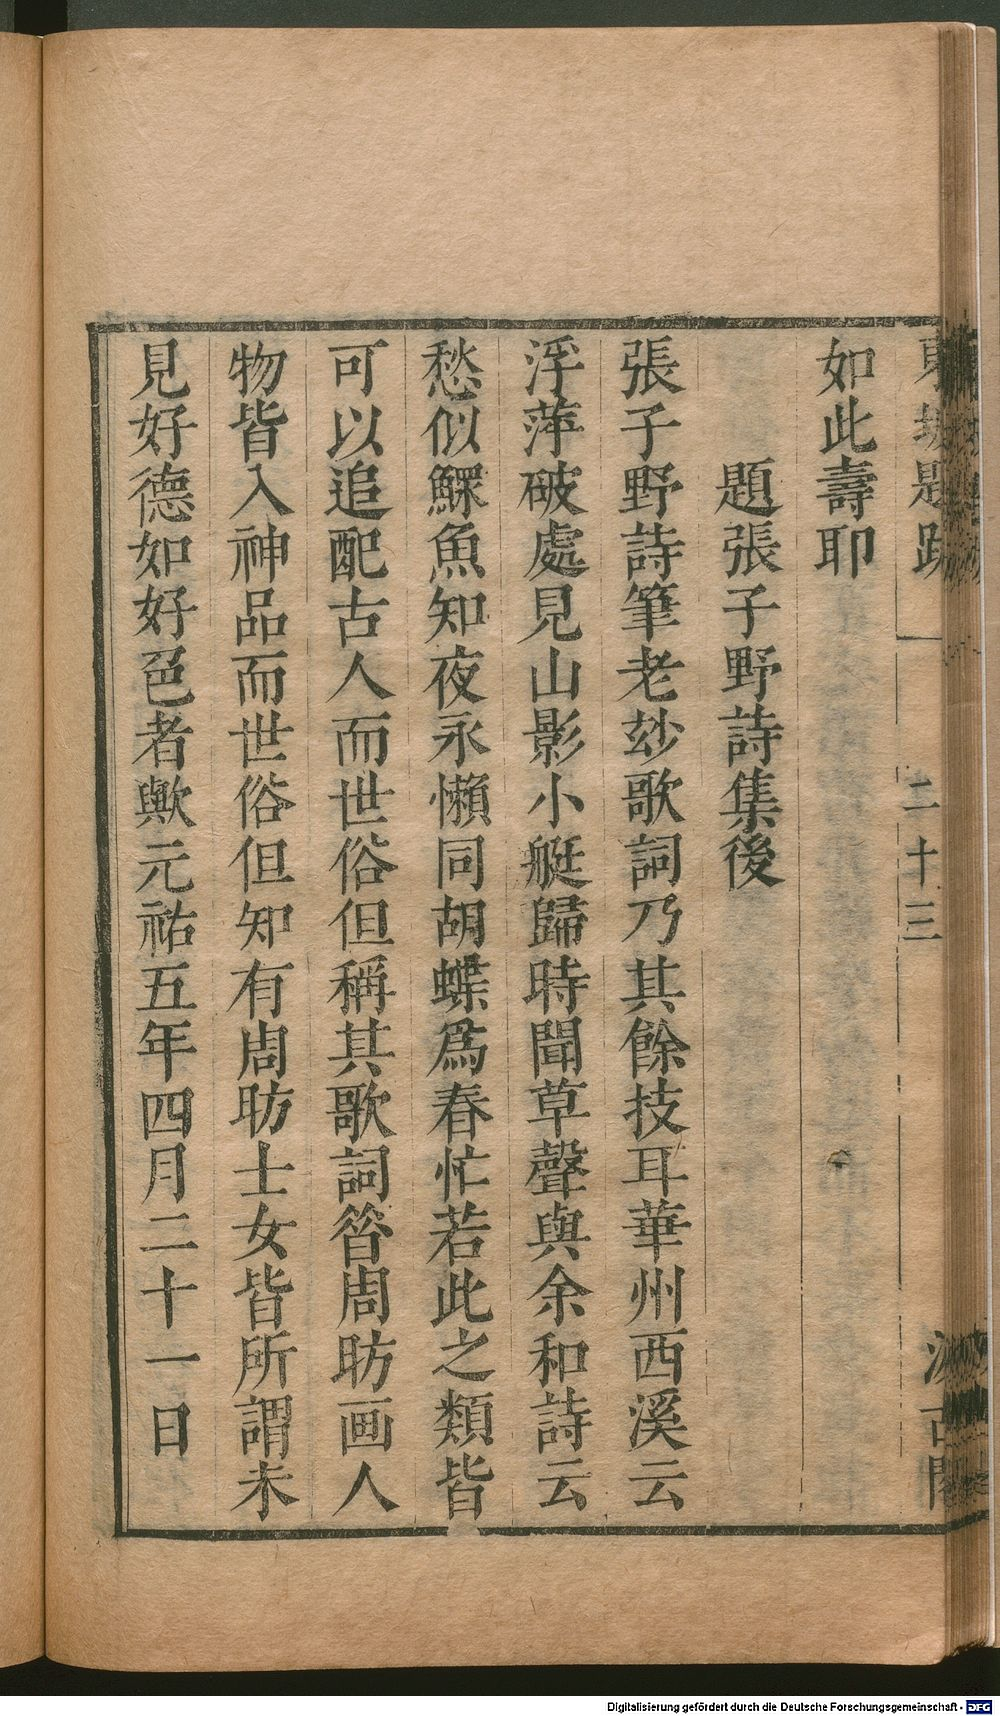 東坡題跋
二十三
汲古閣
如此壽耶
題張子野詩集後
張子野詩筆老玅歌詞乃其餘技耳華州西溪云
浮萍破處見山影小艇歸時聞草聲與余和詩云
愁似鰥魚知夜永懶同胡蝶爲春忙若此之類皆
可以追配古人而世俗但稱其歌詞昝周昉画人
物皆入神品而世俗但知有周昉士女皆所謂未
見好德如好色者歟元祐五年四月二十一日
Digitalisierung gefördert durch die Deutsche Forschungsgemeinschaft - DFG